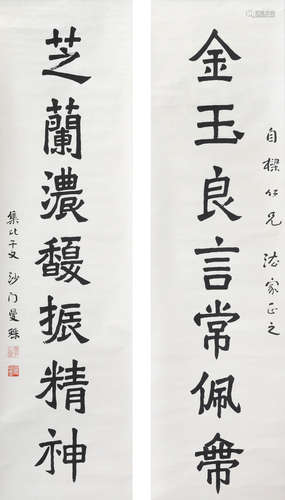 自樑仁兄 法家正之
金玉良言常佩帶
芝蘭濃馥振精神
集比干文 沙门曼殊